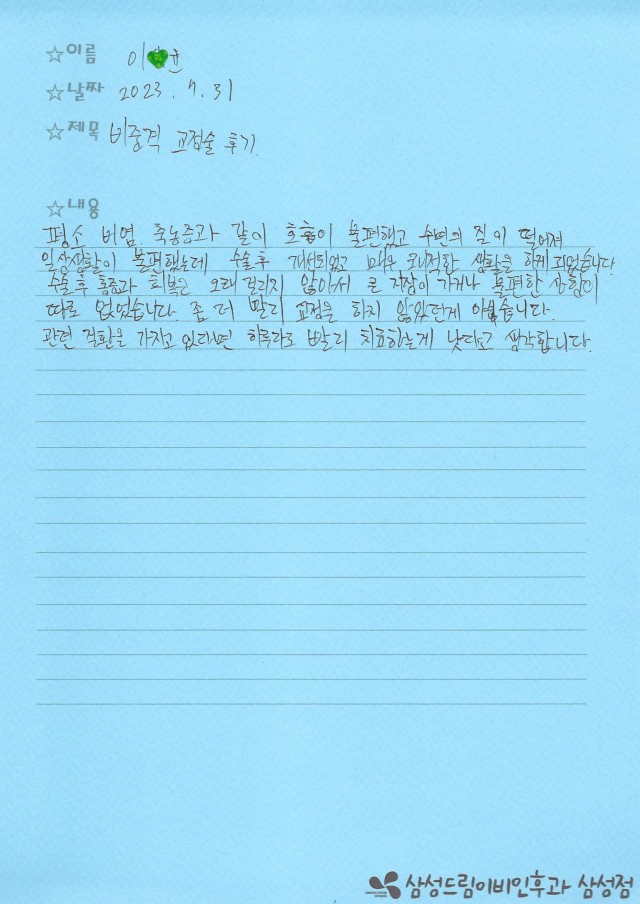 ☆이름 이 윤
☆날짜 2023. 7. 31
☆제목 비중격 교정술 후기.
☆내용
평소 비염, 축농증과 같이 호흡이 불편했고 수면의 질이 떨어져
일상생활이 불편했는데 수술후 개선되었고 매우 쾌적한 생활을 하게 되었습니다.
수술 후 통증과 회복은 오래 걸리지 않아서 큰 지장이 가거나 불편한 상황이
따로 없었습니다. 좀 더 빨리 교정을 하지 않았단게 아쉽습니다.
관련 질환을 가지고 있다면 하루라도 빨리 치료하는게 낫다고 생각합니다.
삼성드림이비인후과 삼성점